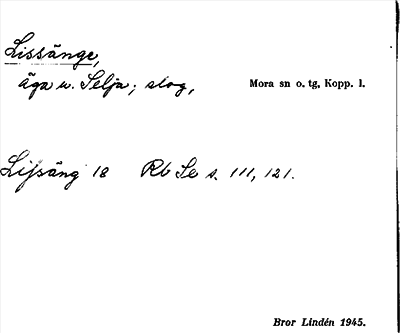 Lissänge,
äga u. Selja; slog, Mora sn o. tg, Kopp. l.
Lissäng 18 Rb Se s. 111, 121.
Bror Lindén 1945.